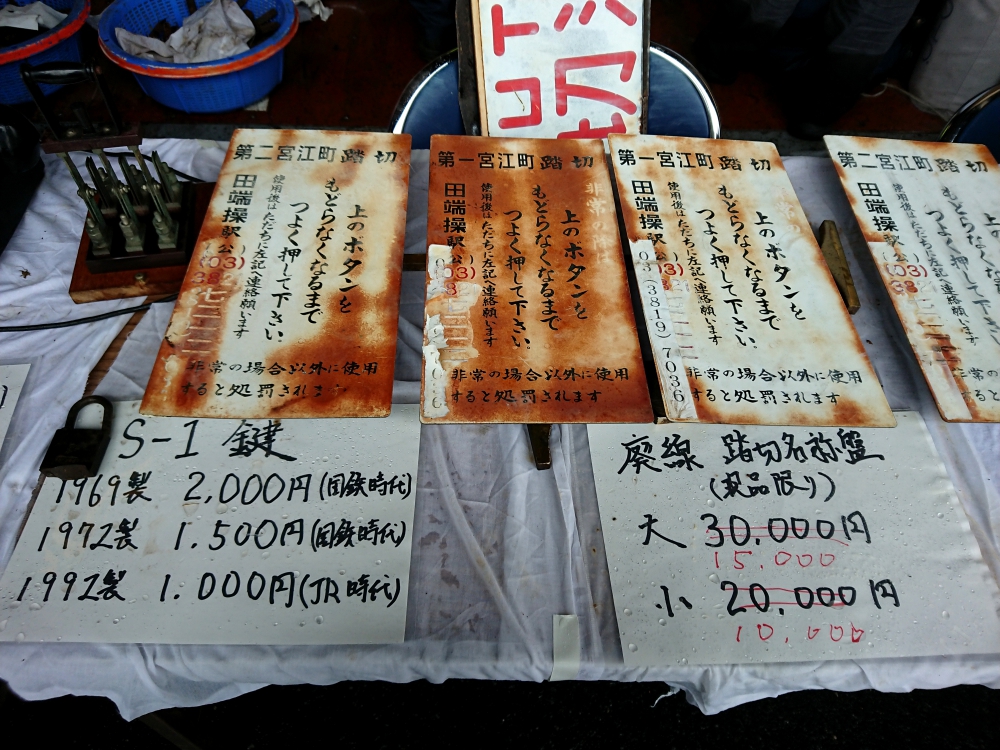 第二宮江町踏切
上のボタンを
もどらなくなるまで
つよく押して下さい
使用後はただちに左記へ連絡願います
田端操駅
(公)
(03)
非常の場合以外に使用
すると処罰されます
第一宮江町踏切
上のボタンを
もどらなくなるまで
つよく押して下さい
使用後はただちに左記へ連絡願います
田端操駅
(03)
非常の場合以外に使用
すると処罰されます
第一宮江町踏切
上のボタンを
もどらなくなるまで
つよく押して下さい
使用後はただちに左記へ連絡願います
田端操駅
03(3819)7036
非常の場合以外に使用
すると処罰されます
第二宮江町踏切
田端操駅
(03)
S-1 鍵
1969製 2,000円(国鉄時代)
1972製 1.500円(国鉄時代)
1992製 1.000円(JR時代)
廃線 踏切名称盤
(現品限り)
大 30,000円
15,000
小 20,000円
10,000